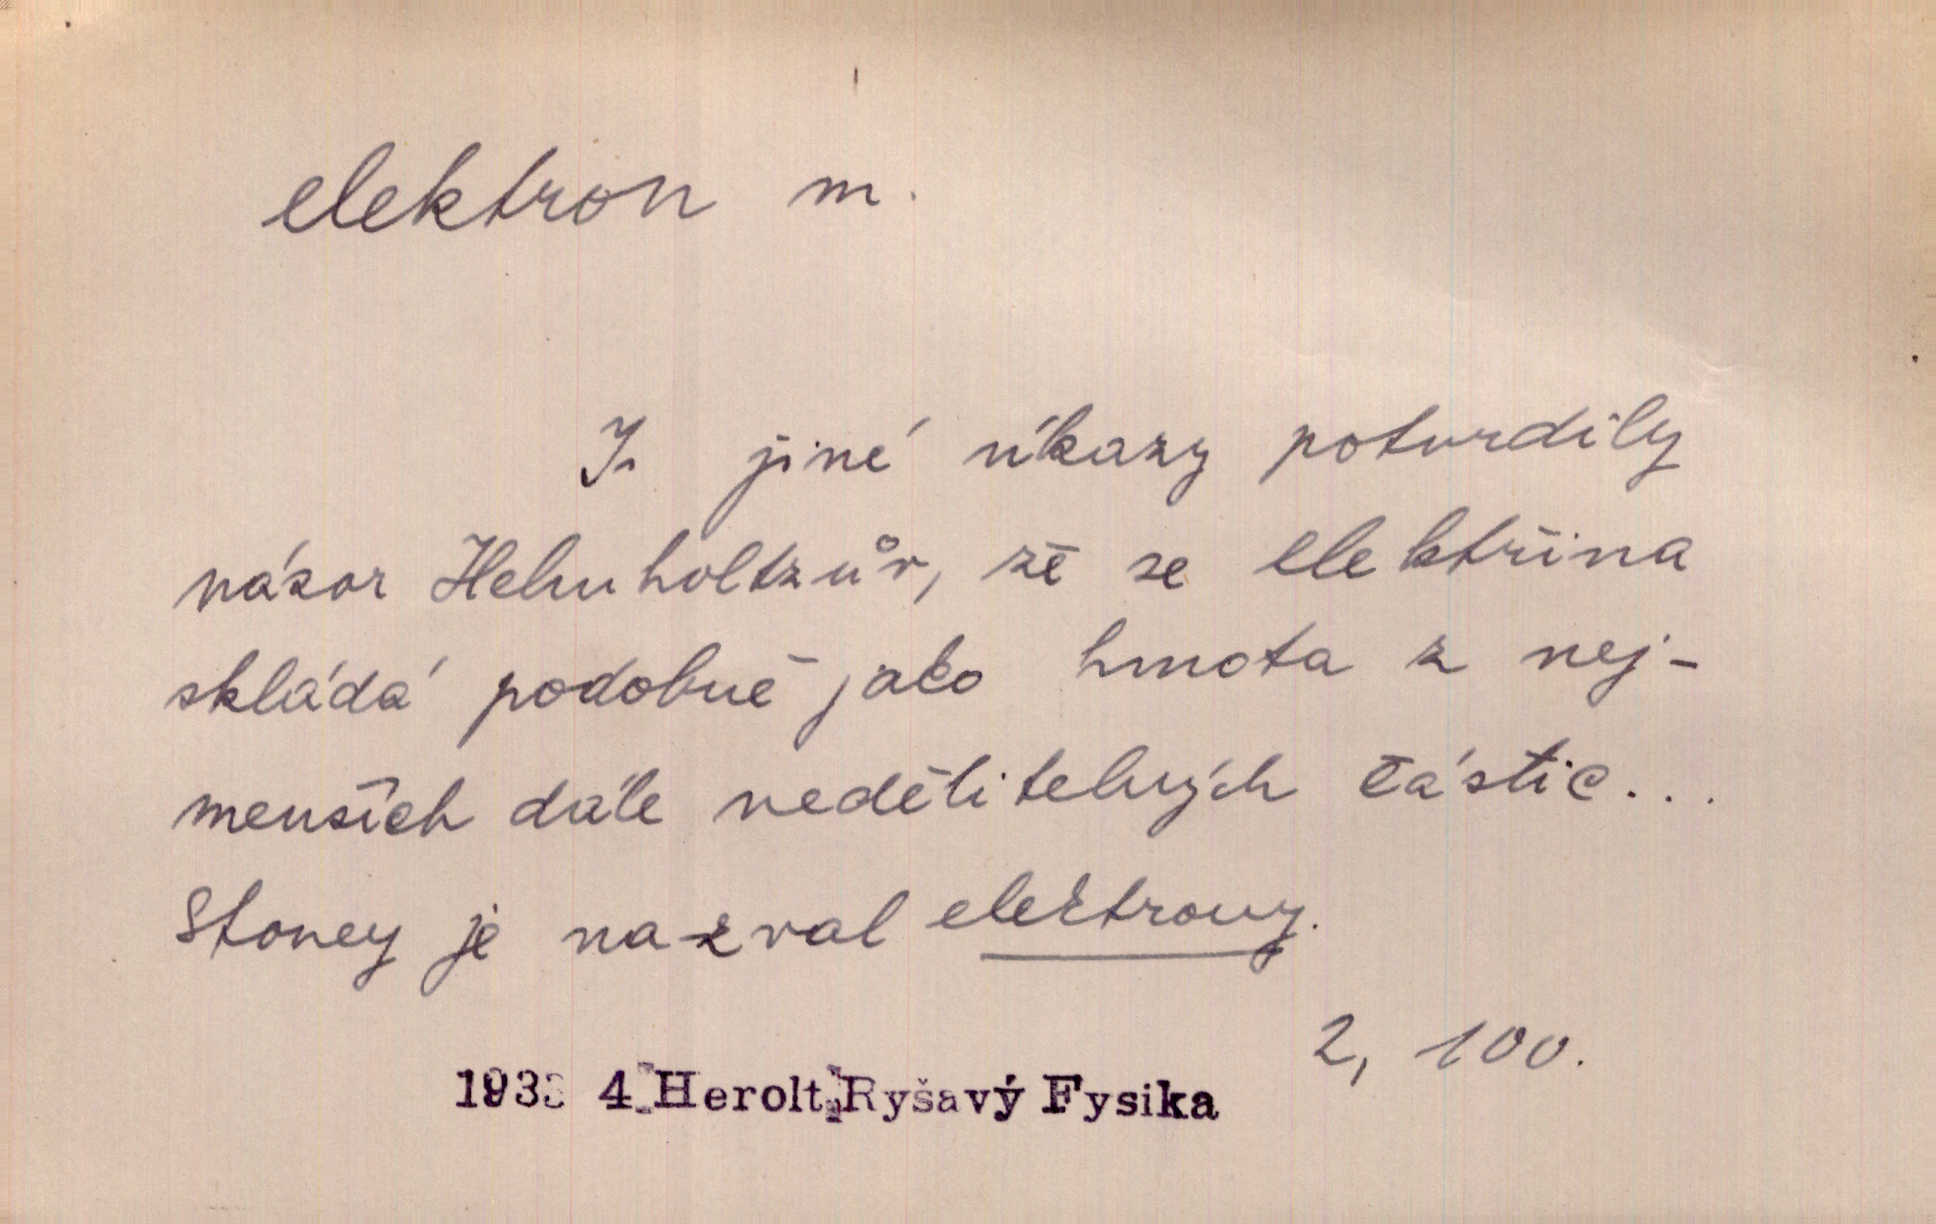 elektron m.
I jiné úkazy potvrdily
názor Helmholtzův, že se elektřina
skládá podobně jako hmota z nej-
menších dále nedělitelných částic...
Stoney je nazval elektrony.
2, 100.
1933 4 Herolt Ryšavý Fysika